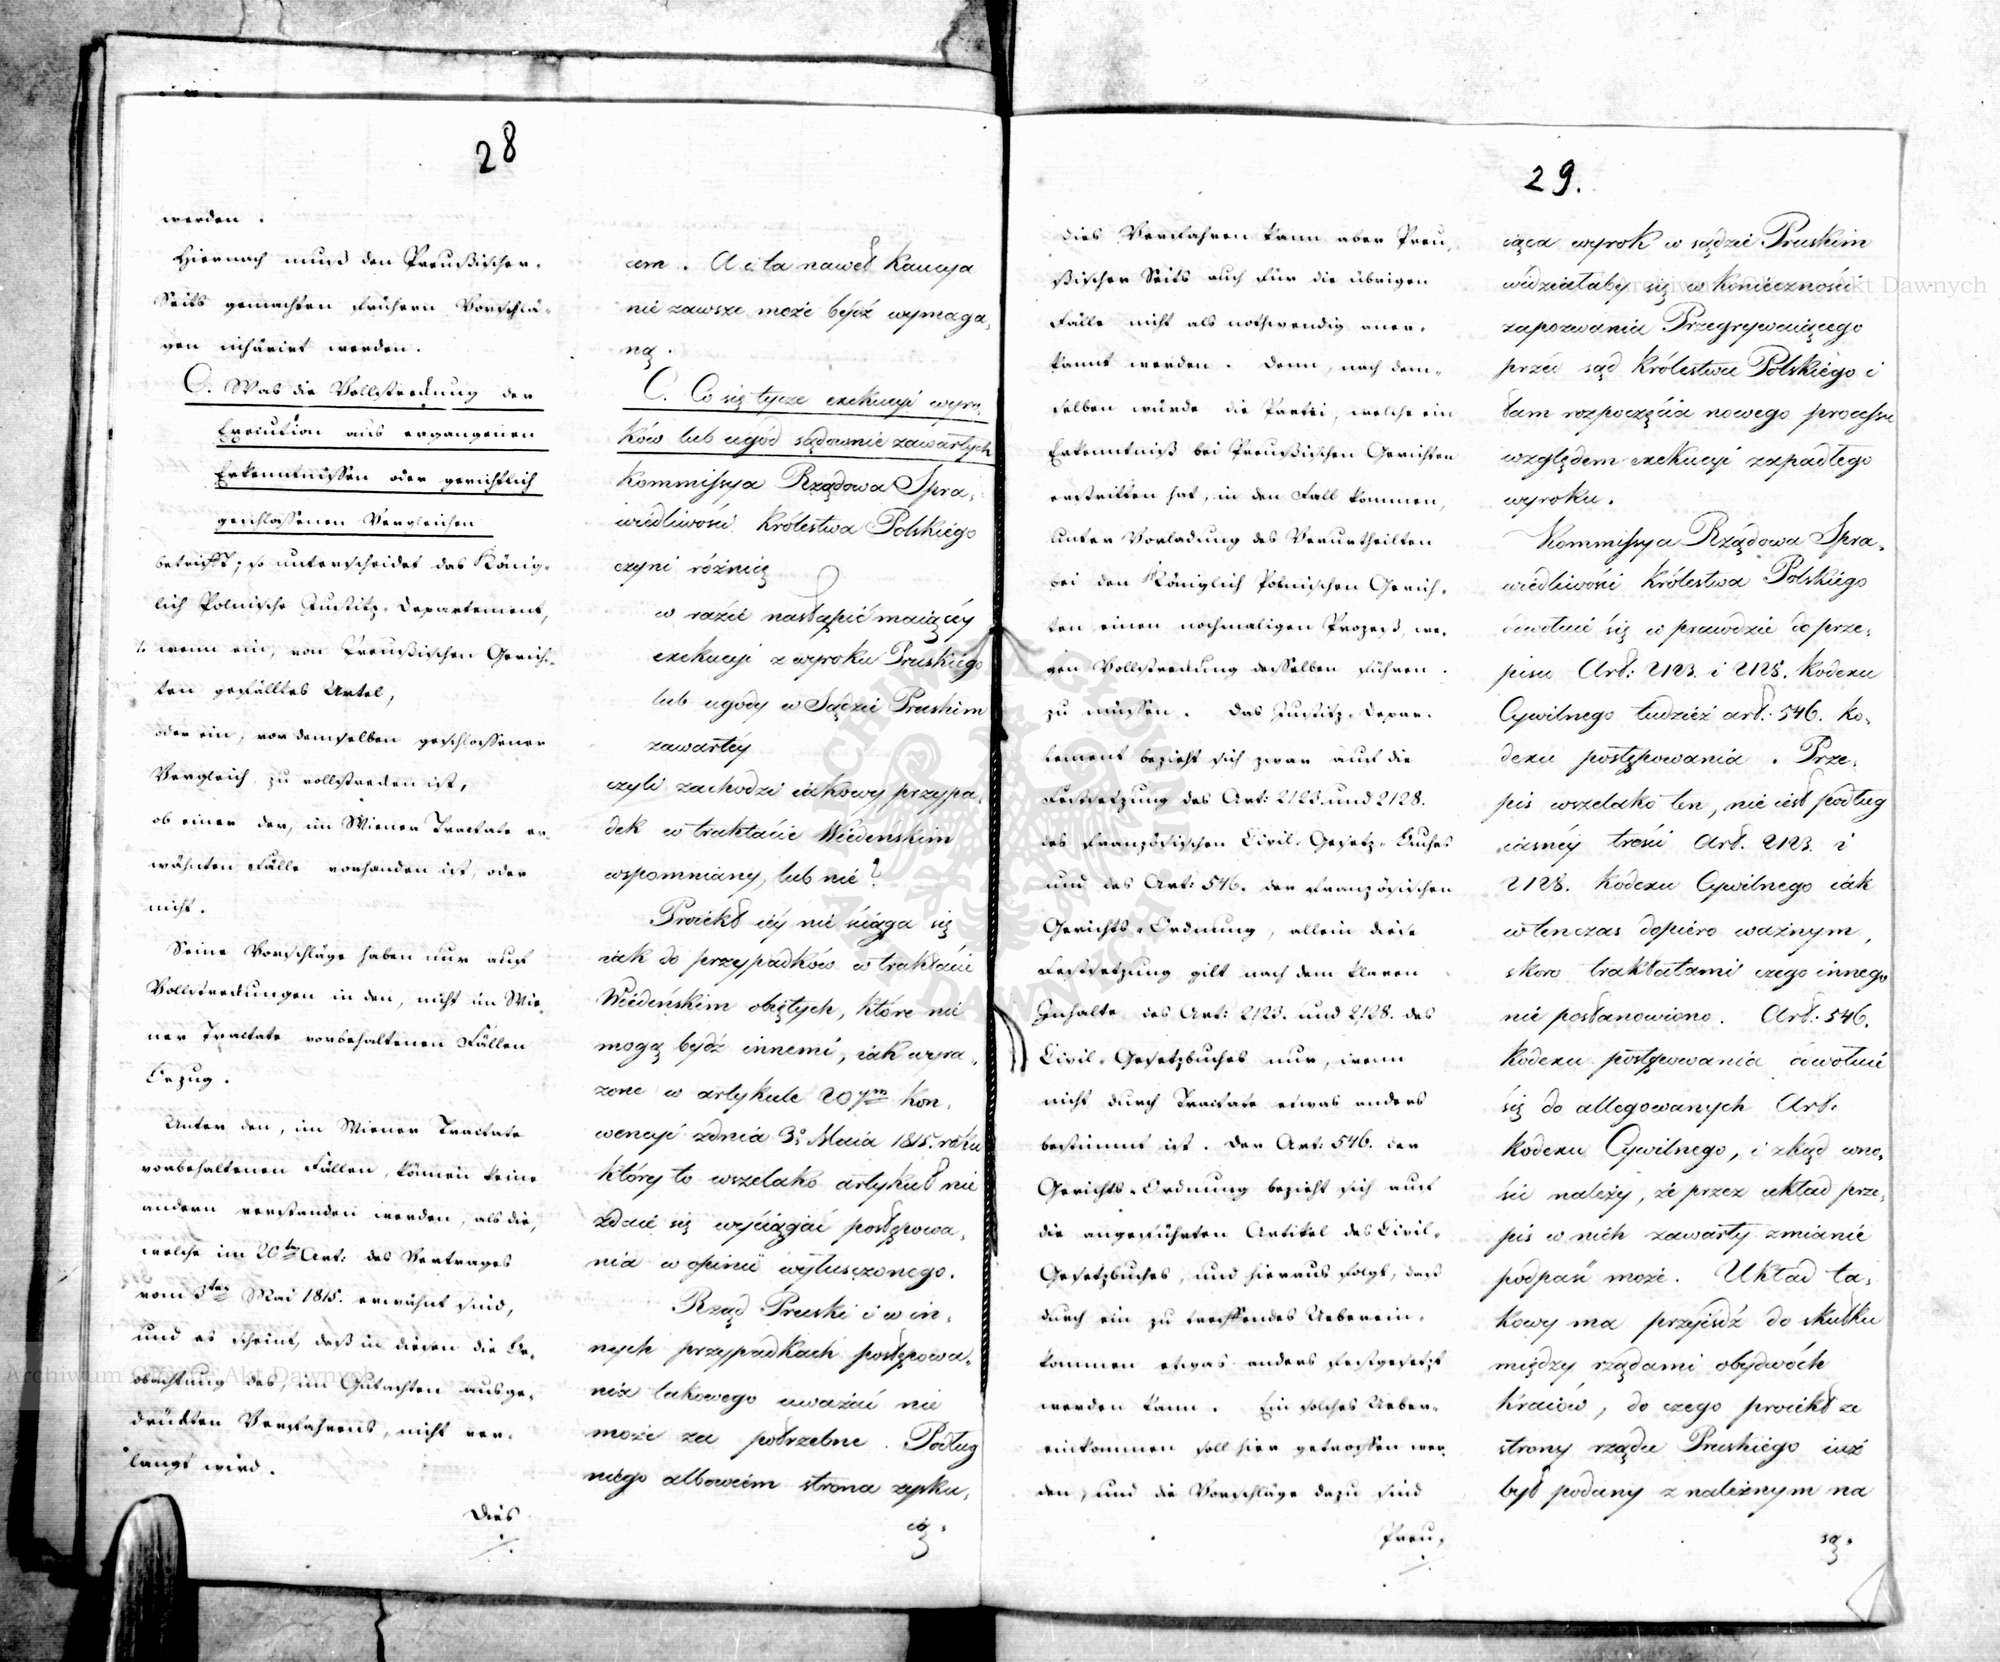 28
werden.
Hiernach muß den Preußischer-
Seits gemachten frühern Vorschlä-
gen inhärirt werden.
C. Was die Vollstreckung der
Execution aus ergangenen
Erkenntnissen oder gerichtlich
geschlossenen Vergleichen
betrifft; so unterscheidet das König-
lich Polnische Justitz-Departement,
wenn ein, von Preußischen Gerich-
ten gefälltes Urtel,
oder ein, vor demselben geschlossener
Vergleich, zu vollstrecken ist,
ob einer der, im Wiener Tractate er-
wähnten Fälle vorhanden ist, oder
nicht.
Seine Vorschläge haben nur auf
Vollstreckungen in den, nicht im Wie-
ner Tractate vorbehaltenen Fällen
Bezug.
Unter den, im Wiener Tractate
vorbehaltenen Fällen, können keine
andern verstanden werden, als die,
welche im 20ten Art: des Vertrages
vom 3ten Mai 1815. erwähnt sind,
und es scheint, daß in diesen die Be-
obachtung des, im Gutachten ausge-
drückten Verfahrens, nicht ver-
langt wird.
Dies
cem. A i ta nawet Kaucya
nie zawsze może bydź wymaga-
ną.
C. Co się tycze exekucyi wyro-
ków lub ugód sądownie zawartych
Kommissya Rządowa Spra-
wiedliwości Królestwa Polskiego
czyni różnicę
w razie nastąpić maiącéy
exekucyi z wyroku Pruskiego
lub ugody w Sądzie Pruskim
zawartéy
czyli zachodzi iakowy przypa-
dek w traktacie Wiedeńskim
wspomniany, lub nie?
Proiekt iéy nie ściąga się
iak do przypadków w traktacie
Wiedeńskim obiętych, które nie
mogą bydź innemi, iak wyra-
żone w artykule 20ym kon-
wencyi z dnia 3o Maia 1815. roku
który to wszelako artykuł nie
zdaie się wyciągać postępowa-
nia w opinii wyłuszczonego.
Rząd Pruski i w in-
nych przypadkach postępowa-
nia takowego uważać nie
może za potrzebne. Podług
niego albowiem strona zysku-
ią-
29.
Dies Verfahren kann aber Preu-
ßischer Seits auch für die übrigen
Fälle nicht als nothwendig aner-
kannt werden. Denn, nach dem-
selben würde die Partei, welche ein
Erkenntniß bei Preußischen Gerichten
erstritten hat, in den Fall kommen,
unter Vorladung des Verurtheilten
bei den Königlich Polnischen Gerich-
ten einen nochmaligen Prozeß, we-
gen Vollstreckung desselben führen
zu müssen. Das Justitz-Depar-
tement bezieht sich zwar auf die
Festsetzung des Art: 2123. und 2128.
des französischen Civil-Gesetz-Buches
und des Art: 546. der französischen
Gerichts-Ordnung, allein diese
Festsetzung gilt nach dem klaren
Inhalte des Art: 2123. und 2128. des
Civil-Gesetzbuches nur, wenn
nicht durch Tractate etwas anders
bestimmt ist. Der Art: 546. der
Gerichts-Ordnung bezieht sich auf
die angeführten Artikel des Civil-
Gesetzbuches, und hieraus folgt, daß
durch ein zu treffendes Ueberein-
kommen etwas anders festgesetzt
werden kann. Ein solches Ueber-
einkommen soll hier getroffen wer-
den, und die Vorschläge dazu sind
Preu-
iąca wyrok w sądzie Pruskim
widziałaby się w konieczności
zapozwania Przegrywaiącego
przed sąd Królestwa Polskiego i
tam rozpoczęcia nowego processu
względem exekucyi zapadłego
wyroku.
Kommissya Rządowa Spra-
wiedliwości Królestwa Polskiego
odwołuie się w prawdzie do prze-
pisu Art: 2123. i 2128. Kodexu
Cywilnego tudzież art: 546. ko-
dexu postępowania. Prze-
pis wszelako ten, nie iest podług
iasnéy treści Art. 2123. i
2128. Kodexu Cywilnego iak
wtenczas dopiero ważnym,
skoro traktatami czego innego
nie postanowiono. Art: 546.
Kodexu postępowania odwołuie
się do allegowanych Art.
kodexu Cywilnego, i zkąd wno-
sić należy, że przez układ prze-
pis w nich zawarty zmianie
podpaść może. Układ ta-
kowy ma przyiśdź do skutku
między rządami obydwóch
kraiów, do czego proiekt ze
strony rządu Pruskiego iuż
był podany z należnym na
są-